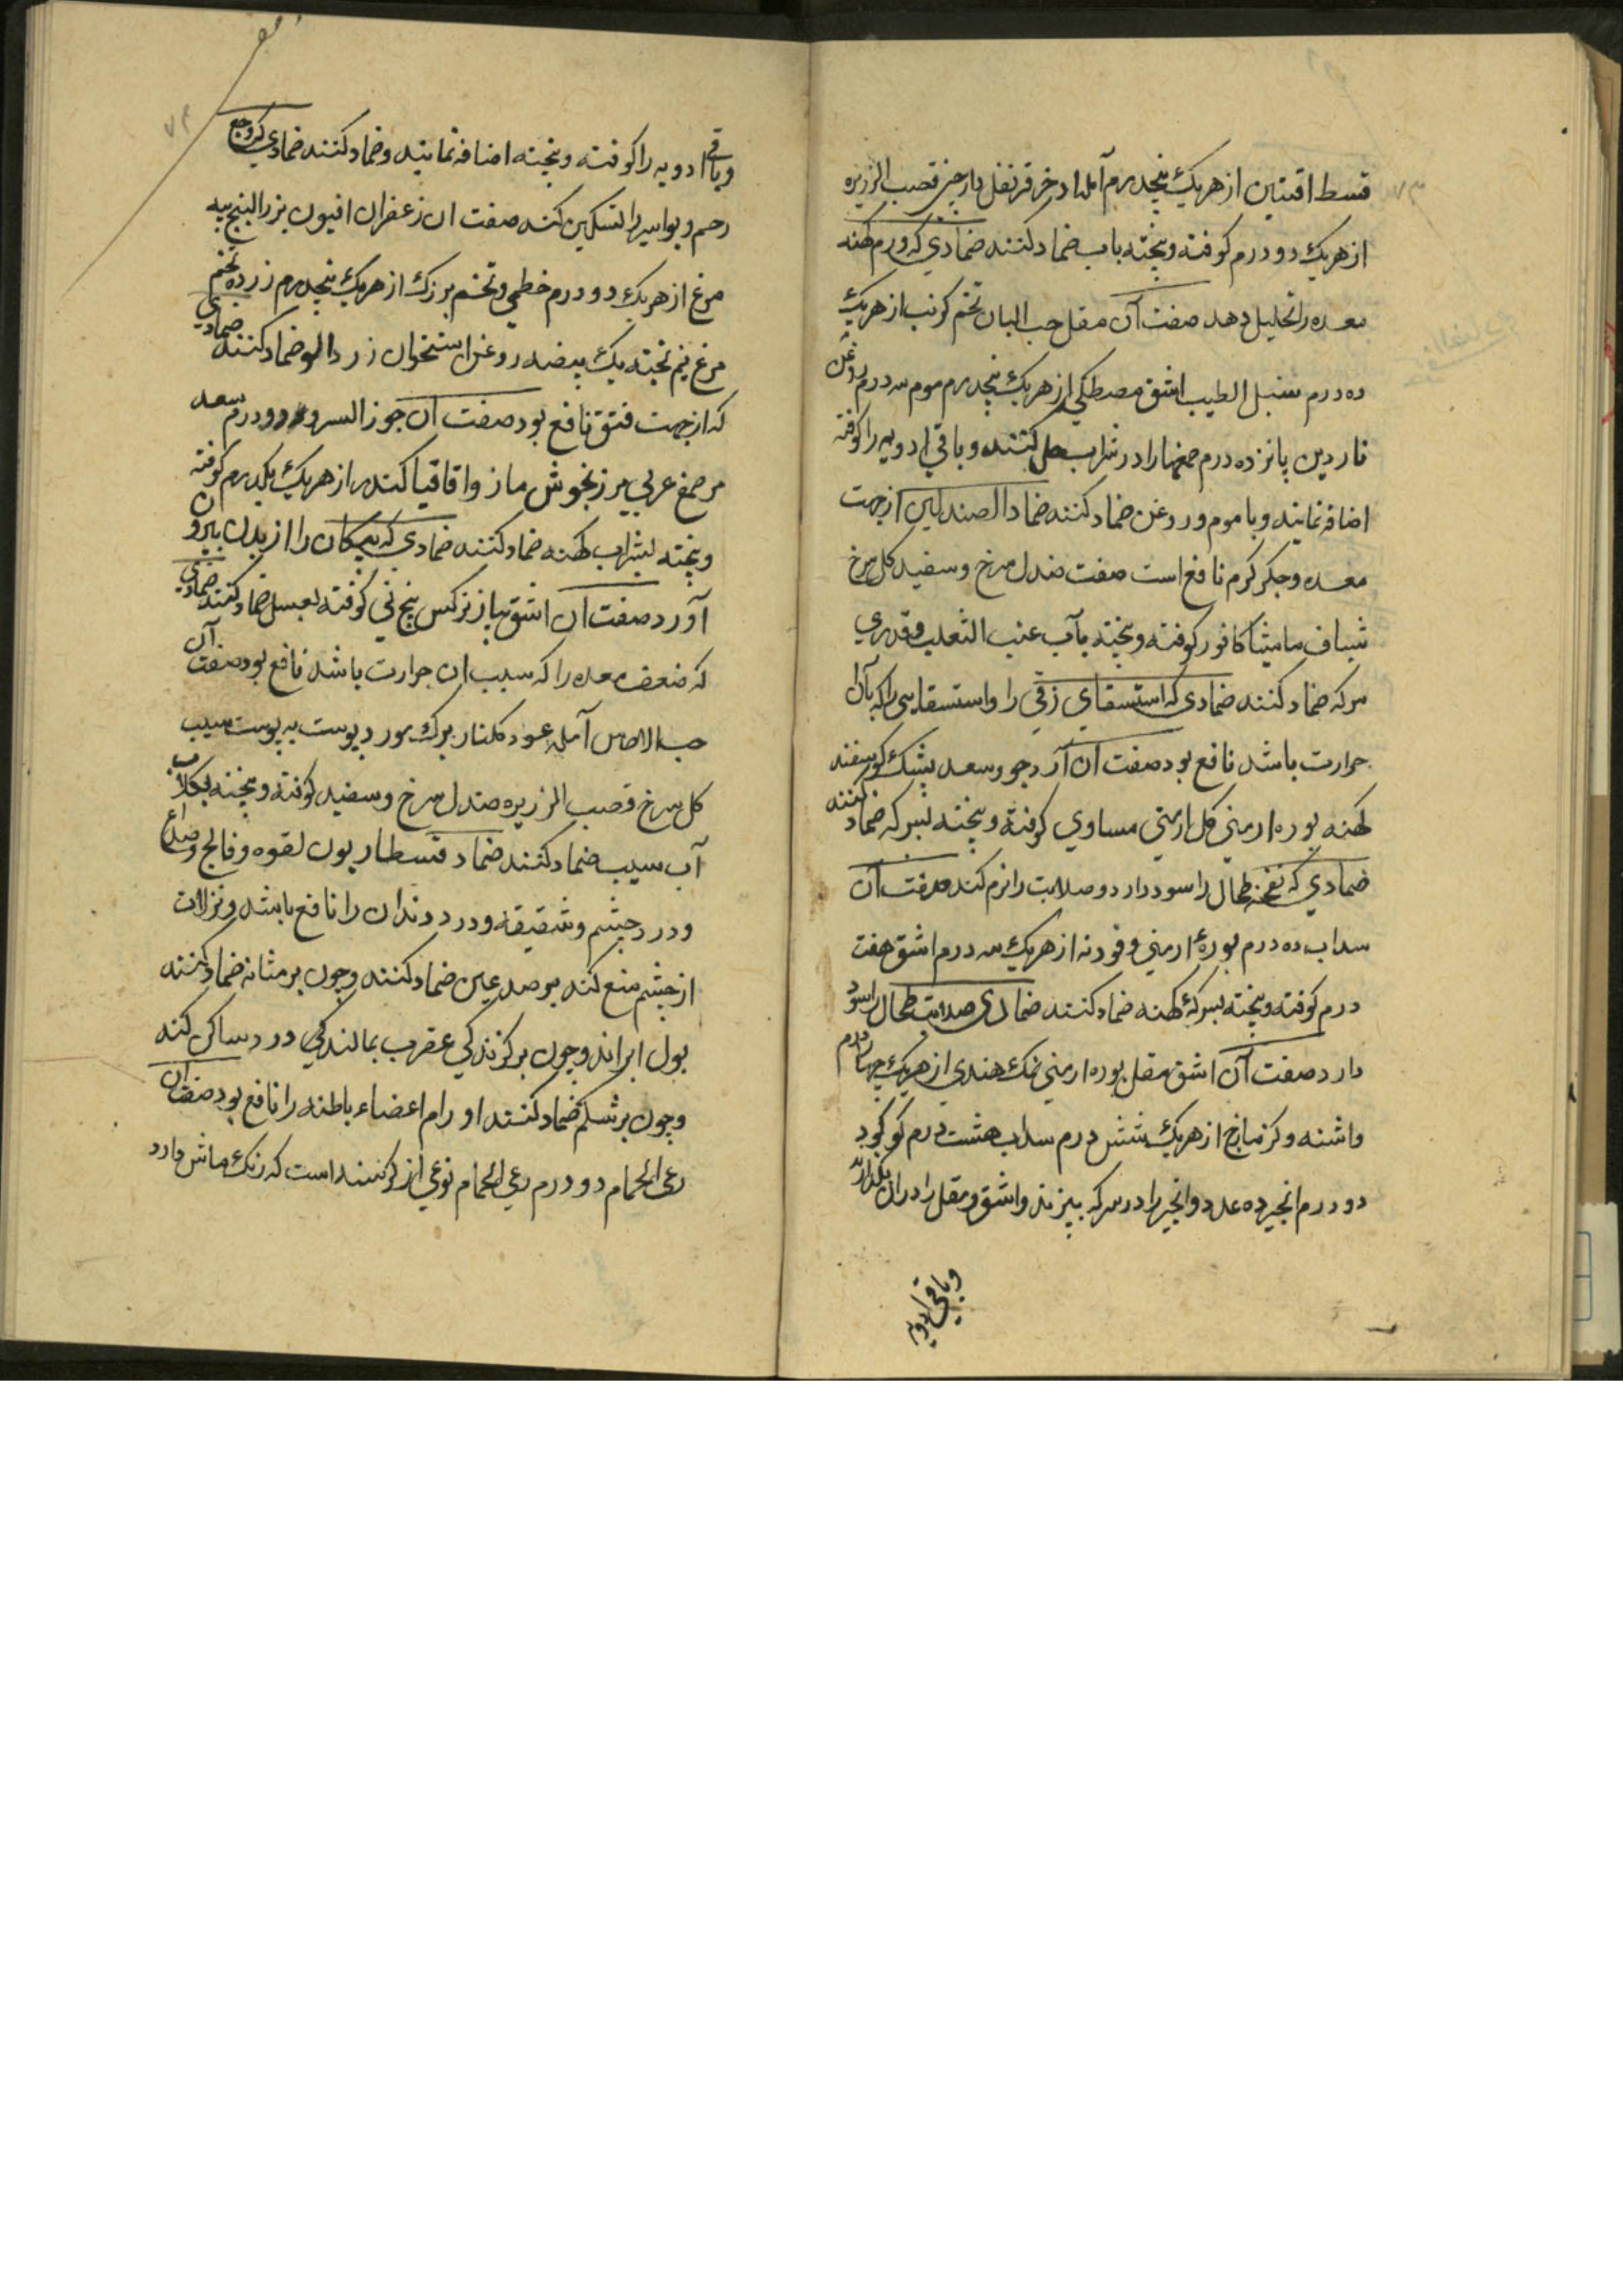 قسط افسنتین از هر یک پنجدرم آمله اذخر قرنفل دارچینی قصب الزریره
از هر یک دو درم کوفته و بیخته بآب ضماد کنند ضمادی که ورم کهنه
معده را تحلیل دهد صفت آن مقل حب البان تخم کرنب از هر یک
ده درم سنبل الطیب اشق مصطکی از هر یک پنجدرم موم سه درم روغن
ناردین پانزده درم صمغها را در شراب حل کنند و باقی ادویه را کوفته
اضافه نمایند و با موم و روغن ضماد کنند ضماد الصندلین از جهت
معده و جکر کرم نافع است صفت صندل سرخ و سفید کل سرخ
شیاف مامیثا کافور کوفته و بیخته بآب عنب الثعلب و قدری
سرکه ضماد کنند ضمادی که استسقای زقی را و استسقایی را که با آن
حرارت باشد نافع بود صفت آن آرد جو و سعد پشک کوسفند
کهنه بوره ارمنی کل ارمنی مساوی کوفته و بیخته بسرکه ضماد کنند
ضمادی که نفخه طحال را سود دارد و صلابت را نرم کند صفت آن
سداب ده درم بورهٔ ارمنی و فودنه از هر یک سه درم اشق هفت
درم کوفته و بیخته بسرکهٔ کهنه ضماد کنند ضمادی صلابت طحال را سود
دارد صفت آن اشق مقل بوره ارمنی نمک هندی از هر یک چهار درم
واشنه و کزمازج از هر یک شش درم سداب هشت درم کوکرد
دو درم انجیر ده عدد و انجیر را در سرکه بپزند و اشق و مقل را در آن بکدازند
و باقی ادویه
و باقی ادویه را کوفته و بیخته اضافه نمایند و ضماد کنند ضمادی که وجع
رحم و بواسیر را تسکین کند صفت آن زعفران افیون بزر البنج پیه
مرغ از هر یک دو درم خطمی و تخم بزرک از هر یک پنجدرم زرده تخم
مرغ نیم پخته یک بیضه روغن استخوان زردالو ضماد کنند ضمادی
که از جهت فتق نافع بود صفت آن جوز السرو دو درم سعد
مر صمغ عربی مرزنجوش مازو اقاقیا کندر از هر یک یکدرم کوفته
و بیخته بشراب کهنه ضماد کنند ضمادی که پیکان را از بدن بیرون
آورد صفت آن اشق پیاز نرکس بیخ نی کوفته بعسل ضماد کنند ضمادی
که ضعف معده را که سبب آن حرارت باشد نافع بود صفت آن
حب الاس آمله عود کلنار برک مورد پوست به پوست سیب
کل سرخ قصب الزریره صندل سرخ و سفید کوفته و بیخته بکلاب
آب سیب ضماد کنند ضماد قنطاریون لقوه و فالج و صداع
و درد چشم و شقیقه و درد دندان را نافع باشد و نزلات
از چشم منع کند بر صدغین ضماد کنند و چون بر مثانه ضماد کنند
بول براند و چون بر کزندکی عقرب بمالند درد ساکن کند
و چون بر شکم ضماد کنند اورام اعضاء باطنه را نافع بود صفت آن
رعی الحمام دو درم رعی الحمام نوعی از کرسنه است که رنک ماش دارد